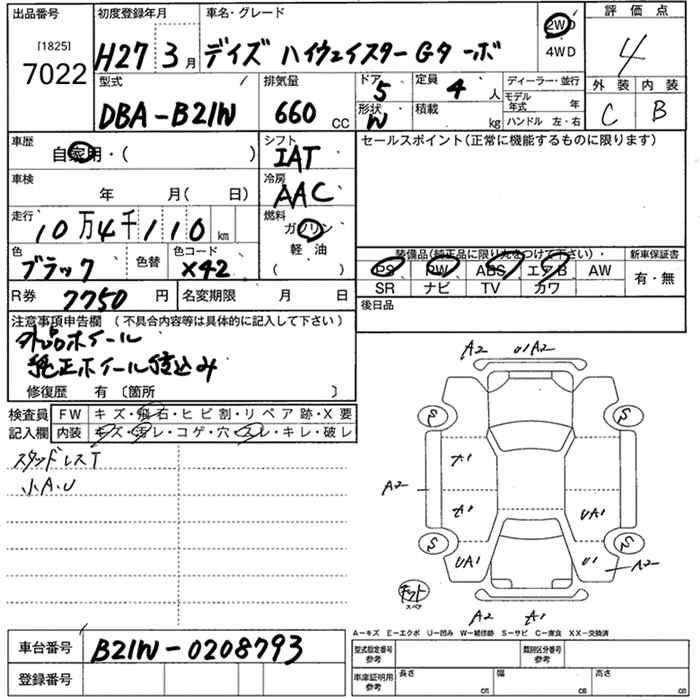 出品番号 初度登録年月 車名・グレード 2WD 評価点
[1825]
7022 H27 3月 デイズ ハイウェイスターGターボ 4WD 4
型式 排気量 ドア 定員 ディーラー・並行 外装 内装
5 4人 モデル年式 年
DBA-B21W 660 CC 形状 W 積載 kg ハンドル 左・右 C B
車歴 シフト セールスポイント(正常に機能するものに限ります)
自家用・( ) IAT
車検 年 月( 日) 冷房 AAC
走行 10万4千110 km 燃料 ガソリン
軽油
( )
色 ブラック 色替 色コード X42
装備品(純正品に限り丸をつけて下さい) 新車保証書
PS PW ABS エアB AW 有・無
SR ナビ TV カワ
R券 7750円 名変期限 月 日 後日品
注意事項申告欄 (不具合内容等は具体的に記入して下さい)
外品ホイール
純正ホイール積込み
修復歴 有 〔箇所 〕
検査員 FW キズ・飛石・ヒビ割・リペア跡・X要
記入欄 内装 キズ・汚レ・コゲ・穴・スレ・キレ・破レ
スタッドレスT
小A.U
A2 U1A2
S S
A1
A2
A1 UA1
S S
UA1 U1 A2
スペア
A2 A1
A-キズ E-エクボ U-凹み W-補修跡 S-サビ C-腐食 XX-交換済
車台番号 B21W-0208793
登録番号
型式指定番号 参考 類別区分番号 参考
車庫証明用 参考 長さ cm 幅 cm 高さ cm